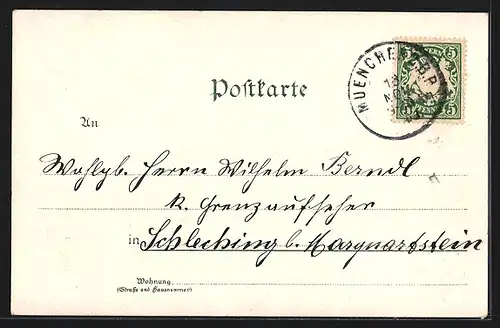 Postkarte
MUENCHEN B.P.
5 5
5 5
An
Wohlgb. Herrn Wilhelm Berndl
k. Grenzaufseher
in Schleching b. Marquartstein
Wohnung
(Straße und Hausnummer)